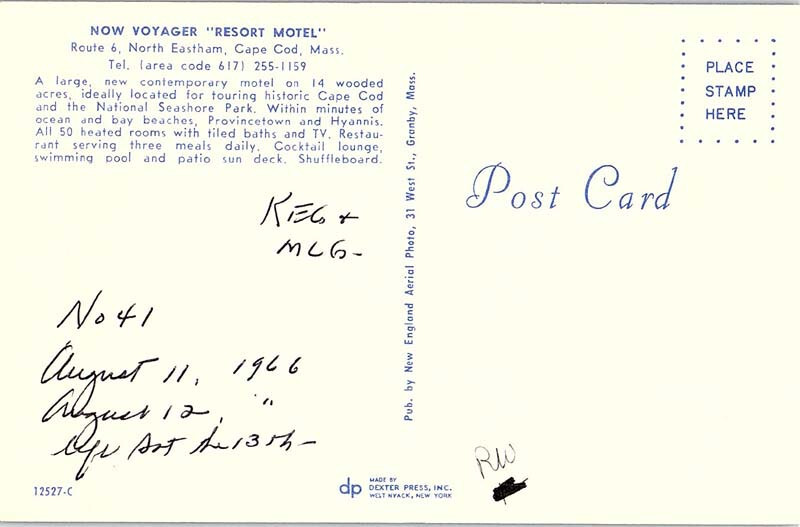 NOW VOYAGER "RESORT MOTEL"
Route 6, North Eastham, Cape Cod, Mass.
Tel. (area code 617) 255-1159
A large, new contemporary motel on 14 wooded
acres, ideally located for touring historic Cape Cod
and the National Seashore Park. Within minutes of
ocean and bay beaches, Provincetown and Hyannis.
All 50 heated rooms with tiled baths and TV. Restau-
rant serving three meals daily. Cocktail lounge,
swimming pool and patio sun deck. Shuffleboard.
KEG +
MLG-
No 41
August 11, 1966
August 12, "
Sat the 13th-
12527-C
Pub. by New England Aerial Photo, 31 West St., Granby, Mass.
dp MADE BY
DEXTER PRESS, INC.
WEST NYACK, NEW YORK
PLACE
STAMP
HERE
Post Card
RW